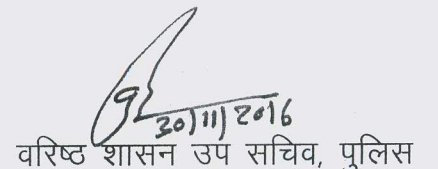 30/11/2016
वरिष्ठ शासन उप सचिव, पुलिस